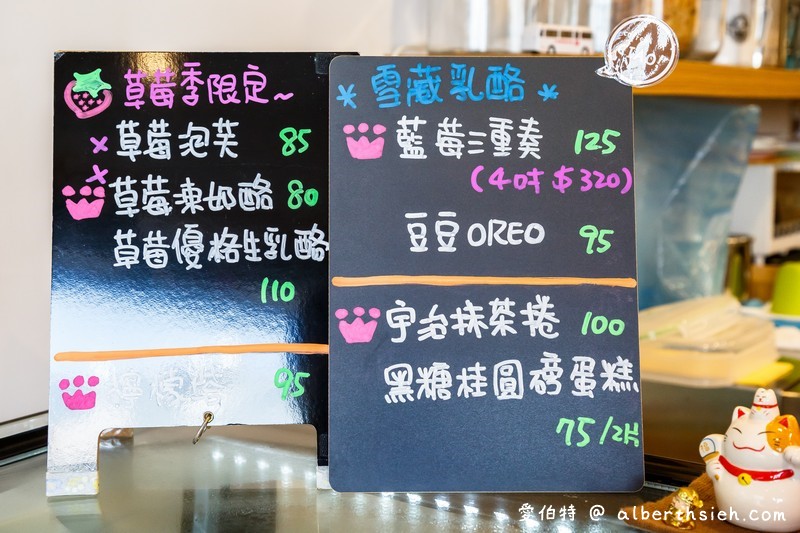 草莓季限定~
×草莓泡芙 85
×草莓凍奶酪 80
草莓優格生乳酪
110
檸檬塔 95
*雪藏乳酪*
藍莓三重奏 125
(4吋$320)
豆豆OREO 95
宇治抹茶捲 100
黑糖桂圓磅蛋糕
75/2片
愛伯特 @ alberthsieh.com